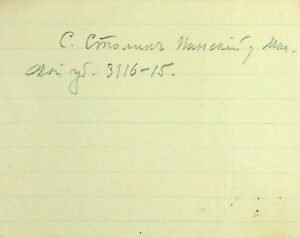 С. Столинъ Пинскій у. Мин-
ской губ. 3116-15.